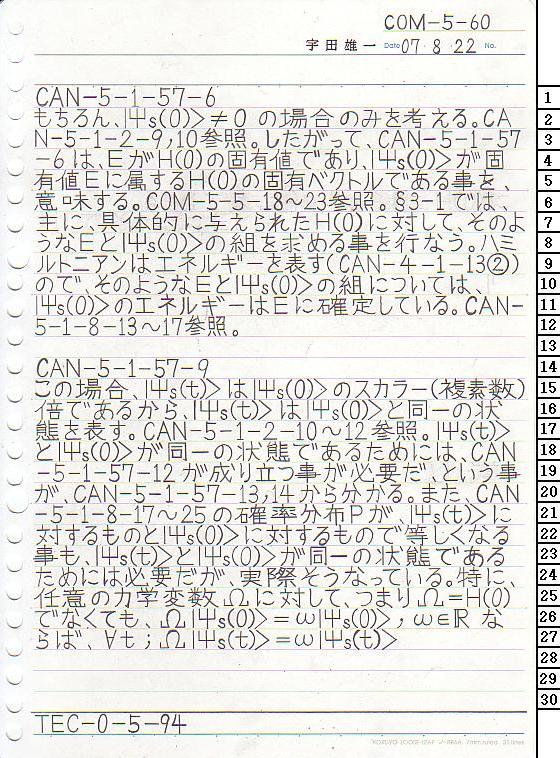 COM-5-60
宇田雄一 Date 07・8・22 No.
CAN-5-1-57-6
もちろん、|Ψs(0)> ≠ 0 の場合のみを考える。CA
N-5-1-2-9,10参照。したがって、CAN-5-1-57
-6は、EがH(0)の固有値であり、|Ψs(0)>が固
有値Eに属するH(0)の固有ベクトルである事を、
意味する。COM-5-5-18~23参照。§3-1では、
主に、具体的に与えられたH(0)に対して、そのよ
うなEと|Ψs(0)>の組を求める事を行なう。ハミ
ルトニアンはエネルギーを表す(CAN-4-1-13②)
ので、そのようなEと|Ψs(0)>の組については、
|Ψs(0)>のエネルギーはEに確定している。CAN-
5-1-8-13~17参照。
CAN-5-1-57-9
この場合、|Ψs(t)>は|Ψs(0)>のスカラー(複素数)
倍であるから、|Ψs(t)>は|Ψs(0)>と同一の状
態を表す。CAN-5-1-2-10~12参照。|Ψs(t)>
と|Ψs(0)>が同一の状態であるためには、CAN
-5-1-57-12が成り立つ事が必要だ、という事
が、CAN-5-1-57-13,14から分かる。また、CAN
-5-1-8-17~25の確率分布Pが、|Ψs(t)>に
対するものと|Ψs(0)>に対するもので等しくなる
事も、|Ψs(t)>と|Ψs(0)>が同一の状態である
ためには必要だが、実際そうなっている。特に、
任意の力学変数Ωに対して、つまりΩ=H(0)
でなくても、Ω|Ψs(0)>=ω|Ψs(0)>, ω∈ℝ な
らば、∀t ; Ω|Ψs(t)>=ω|Ψs(t)>
TEC-0-5-94
KOKUYO LOOSE-LEAF 7mm ruled 31 lines
1
2
3
4
5
6
7
8
9
10
11
12
13
14
15
16
17
18
19
20
21
22
23
24
25
26
27
28
29
30